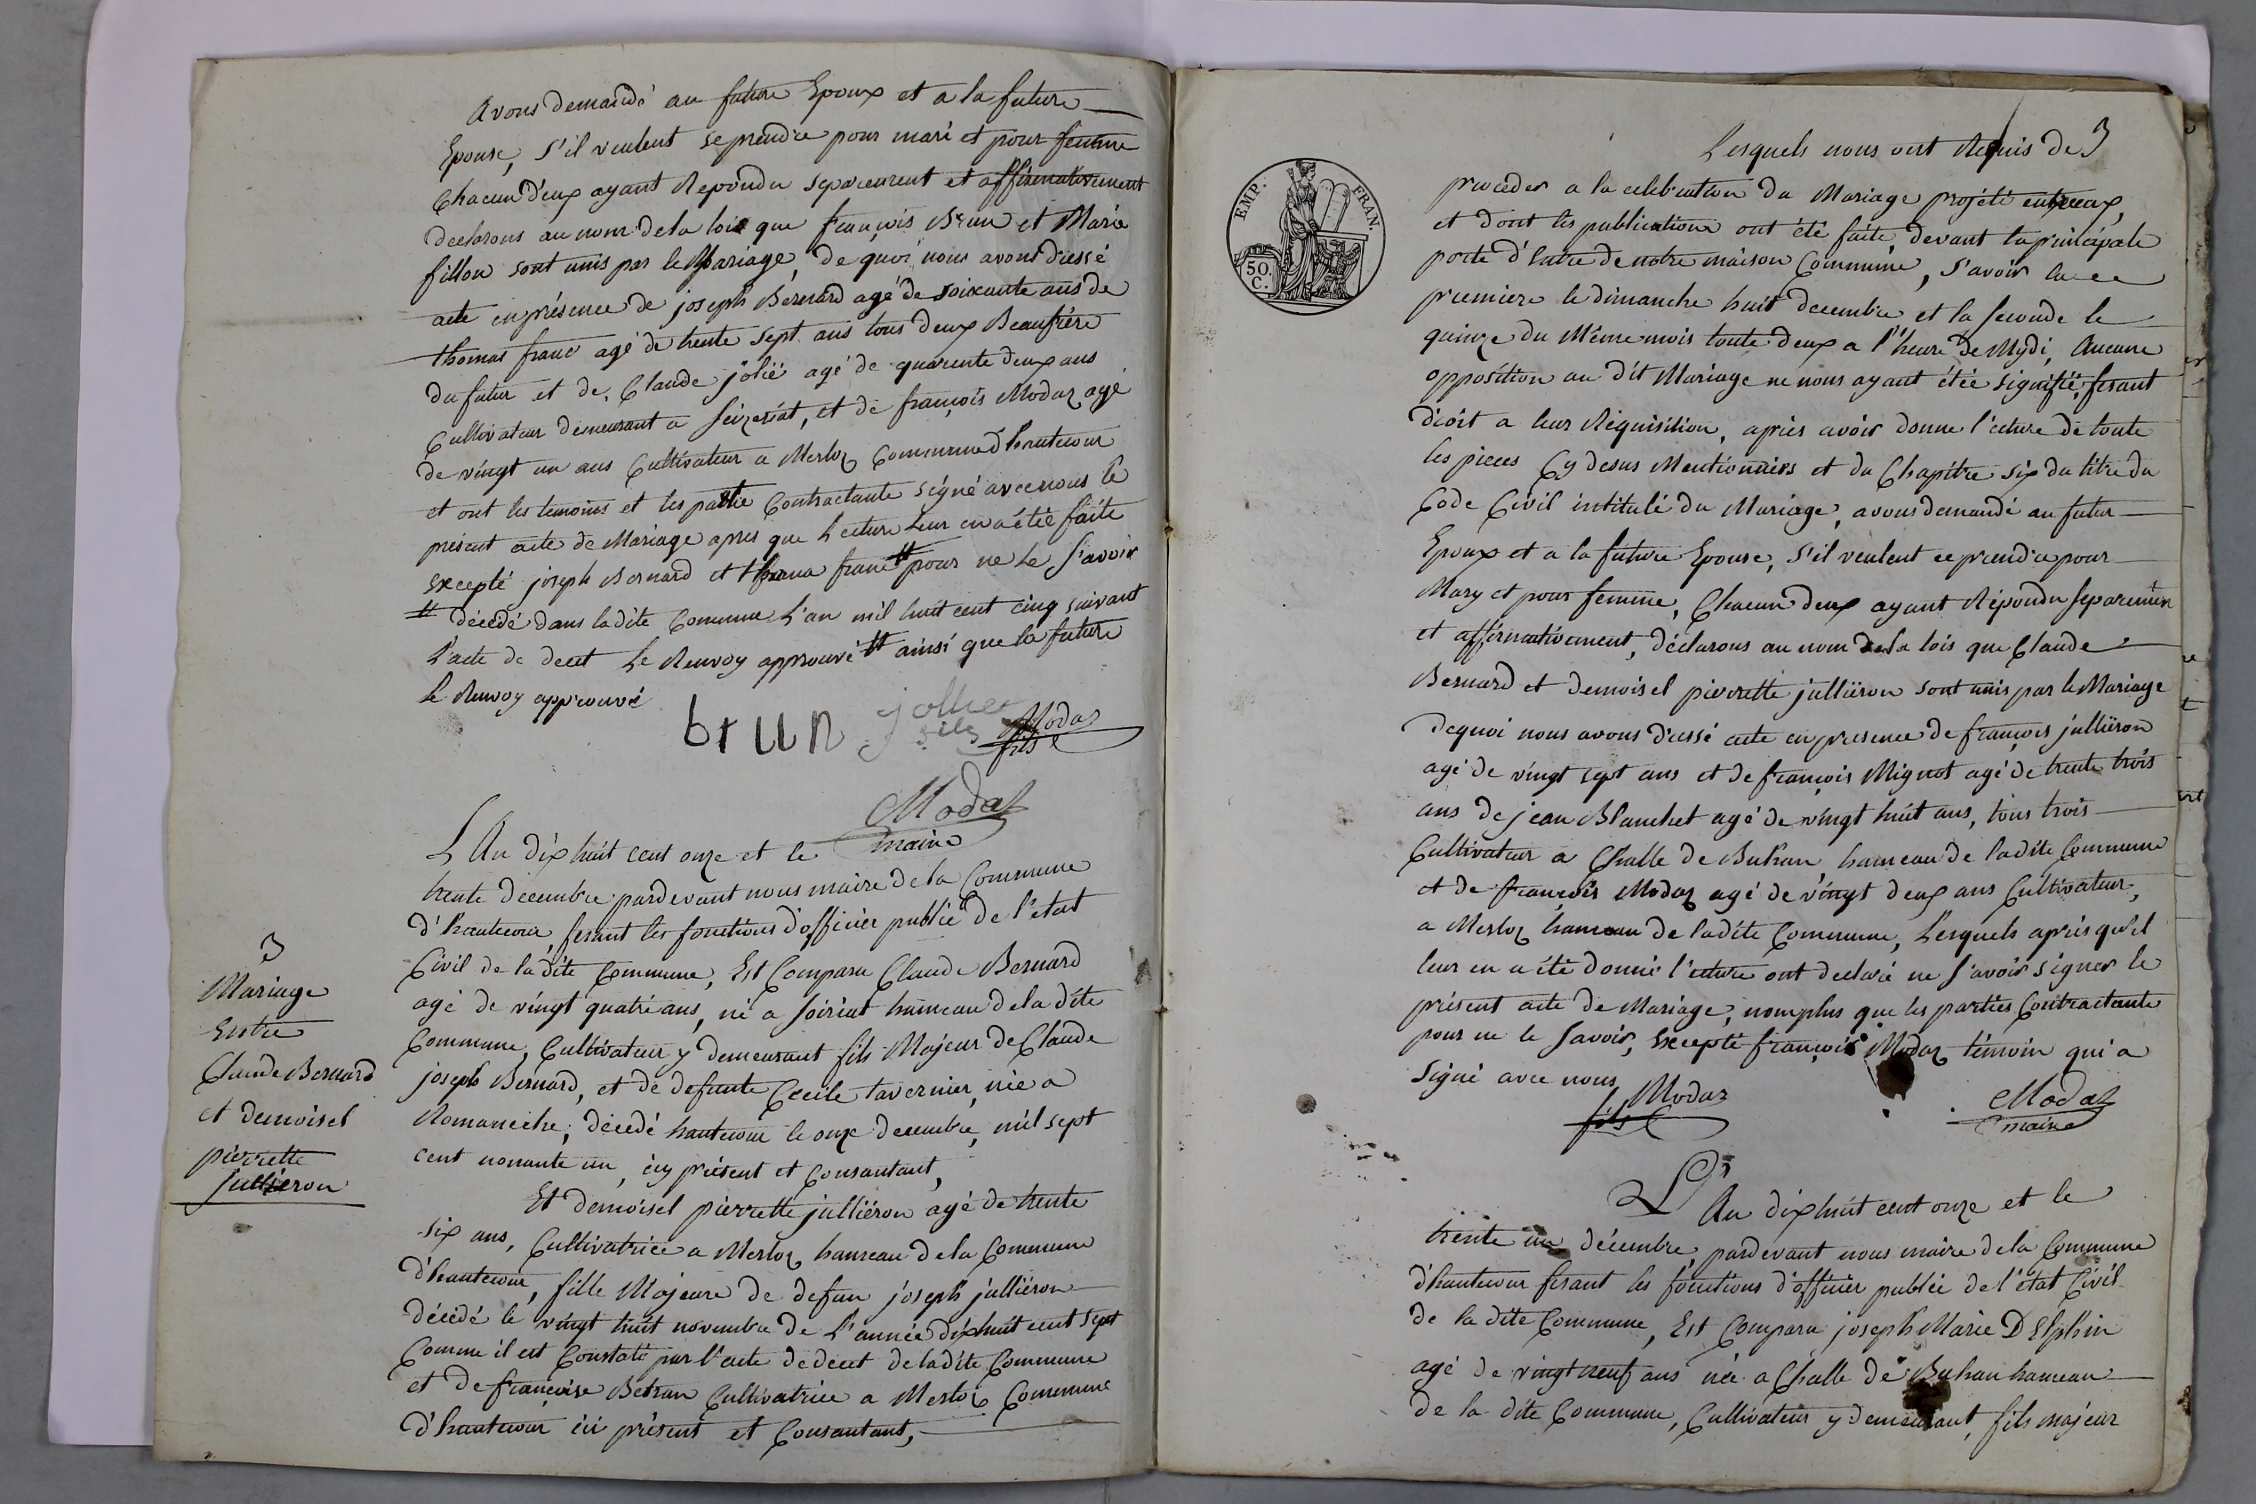 Avons demandé au future Epoux et a la future
Epouse, s'il veulent se prendre pour mari et pour femme
Chacun d'eux ayant Repondu separement et affirmativement
declarons au nom de la loix que françois Brun et Marie
fillon sont unis par le Mariage, de quoi nous avont dressé
acte en présence de joseph Bernard agé de soixante ans de
thomas franc agé de trente sept ans tous deux Beaufrère
du futur et de Claude jolié agé de quarente deux ans
Cultivateur demeurant a Seizeriat, et de françois Modaz agé
de vingt un ans Cultivateur a Merloz Commune d'hautecour
et ont les temoins et les partie Contractante signé avec nous le
présent acte de Mariage apres que Lecture Leur en a étée faite
excepté joseph Bernard et thoma franc # pour ne Le s'avoir
# décédé dans la dite Commune L'an mil huit cent cinq suivant
l'acte de decet Le Renvoy approuvé # ainsi que la future
le Renvoy approuvé
brun jollier fils Modaz fils
Modaz
maire
L'An dix huit cent onze et le
trente decembre pardevant nous maire de la Commune
d'hautecour, fesant les fonctions d'officier public de l'etat
Civil de la dite Commune, Est Comparu Claude Bernard
agé de vingt quatre ans, né a soiriat hameau de la dite
Commune, Cultivateur y demeurant fils Majeur de Claude
joseph Bernard, et de defunte Cecile tavernier, née a
Romaneche, décédé hautecour le onze decembre, mil sept
cent nonante un, icy présent et Consantant,
Et demoisel pierrette julliéron agé de trente
six ans, Cultivatrice a Merloz hameau de la Commune
d'hautecour, fille Majeure de defun joseph julliéron
décédé le vingt huit novembre de L'année dix huit cent sept
Comme il est Constaté par l'acte de decet de la dite Commune
et de françoise Betran Cultivatrice a Merloz Commune
d'hautecour ici présent et Consantant,
3
Mariage
Entre
Claude Bernard
et demoisel
pierrette
Julliéron
EMP. FRAN.
50. C.
3
Lesquels nous ont Requis de
proceder a la celebration du Mariage projété entreeux,
et dont les publications ont été faite, devant la principale
porte d'Entre de notre maison Commune, s'avoir la
premiere le dimanche huit decembre et la seconde le
quinze du Même mois toute deux a l'heure de Mydi, Aucune
opposition au dit Mariage ne nous ayant étée signifié, fesant
droit a leur Réquisition, apries avoir donne l'ecture de toute
les pieces Cy desus Mentionnées et du Chapitre six du titre du
Code Civil intitulé du Mariage, avons demandé au futur
Epoux et a la future Epouse, s'il veulent ce prendre pour
Mary et pour femme, Chacun deux ayant Répondu separemen
et affirmativement, déclarons au nom de la lois que Claude
Bernard et demoisel pierrette julliéron sont unis par le Mariage
dequoi nous avons dressé acte en presence de françois julliéron
agé de vingt sept ans et de françois Mignot agé de trente trois
ans de jean Blanchet agé de vingt huit ans, tous trois
Cultivateur a Challe de Buhan hameau de la dite Commune
et de françois Modaz agé de vingt deux ans Cultivateur,
a Merloz hameau de la dite Commune, Lesquels après qu'il
leur en a été donné l'ecture ont declaré ne s'avoir signer le
présent acte de Mariage, nomplus que les parties Contractante
pour ne le savoir, Excepté françois Modaz témoin qui a
signé avec nous
Modaz
fils
Modaz
maire
L'An dix huit cent onze et le
trente un décembre, pardevant nous maire de la Commune
d'hautecour fesant les fonctions d'officier public de l'état Civil
de la dite Commune, Est Comparu joseph Marie Delphin
agé de vingt neuf ans née a Challe de Buhan hameau
de la dite Commune, Cultivateur y demeurant, fils majeur